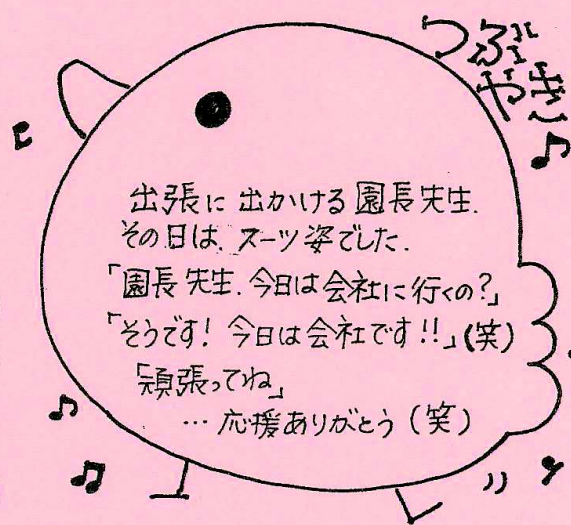 つぶ
やき
出張に出かける園長先生.
その日は、スーツ姿でした.
「園長先生.今日は会社に行くの?」
「そうです!今日は会社です!!」(笑)
「頑張ってね」
…応援ありがとう(笑)